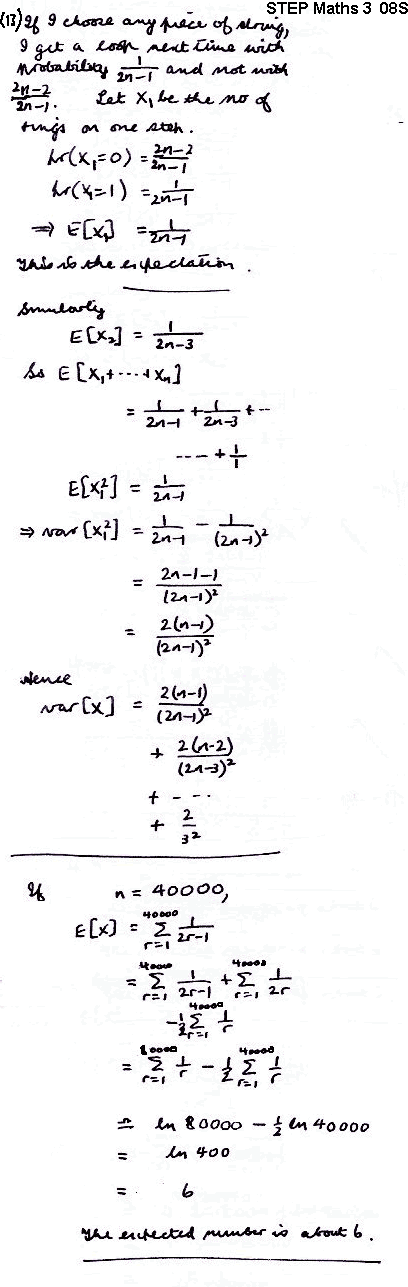 STEP Maths 3 08S
(13) If I choose any piece of string,
I get a loop next time with
probability 1/(2n-1) and not with
(2n-2)/(2n-1). Let X₁ be the no of
rings on one step.
pr(X₁=0) = (2n-2)/(2n-1)
pr(X₁=1) = 1/(2n-1)
⇒ E[X₁] = 1/(2n-1)
This is the expectation.
Similarly
E[X₂] = 1/(2n-3)
So E[X₁+⋯+Xₙ]
= 1/(2n-1) + 1/(2n-3) + ⋯
⋯ + 1/1
E[X₁²] = 1/(2n-1)
⇒ var[X₁²] = 1/(2n-1) - 1/(2n-1)²
= (2n-1-1)/(2n-1)²
= 2(n-1)/(2n-1)²
Hence
var[X] = 2(n-1)/(2n-1)²
+ 2(n-2)/(2n-3)²
+ - ⋯
+ 2/3²
If n = 40000,
E[X] = ∑_{r=1}^{40000} 1/(2r-1)
= ∑_{r=1}^{40000} 1/(2r-1) + ∑_{r=1}^{40000} 1/2r
-½∑_{r=1}^{40000} 1/r
= ∑_{r=1}^{80000} 1/r - ½ ∑_{r=1}^{40000} 1/r
≏ ln 80000 - ½ ln 40000
= ln 400
= 6
The expected number is about 6.